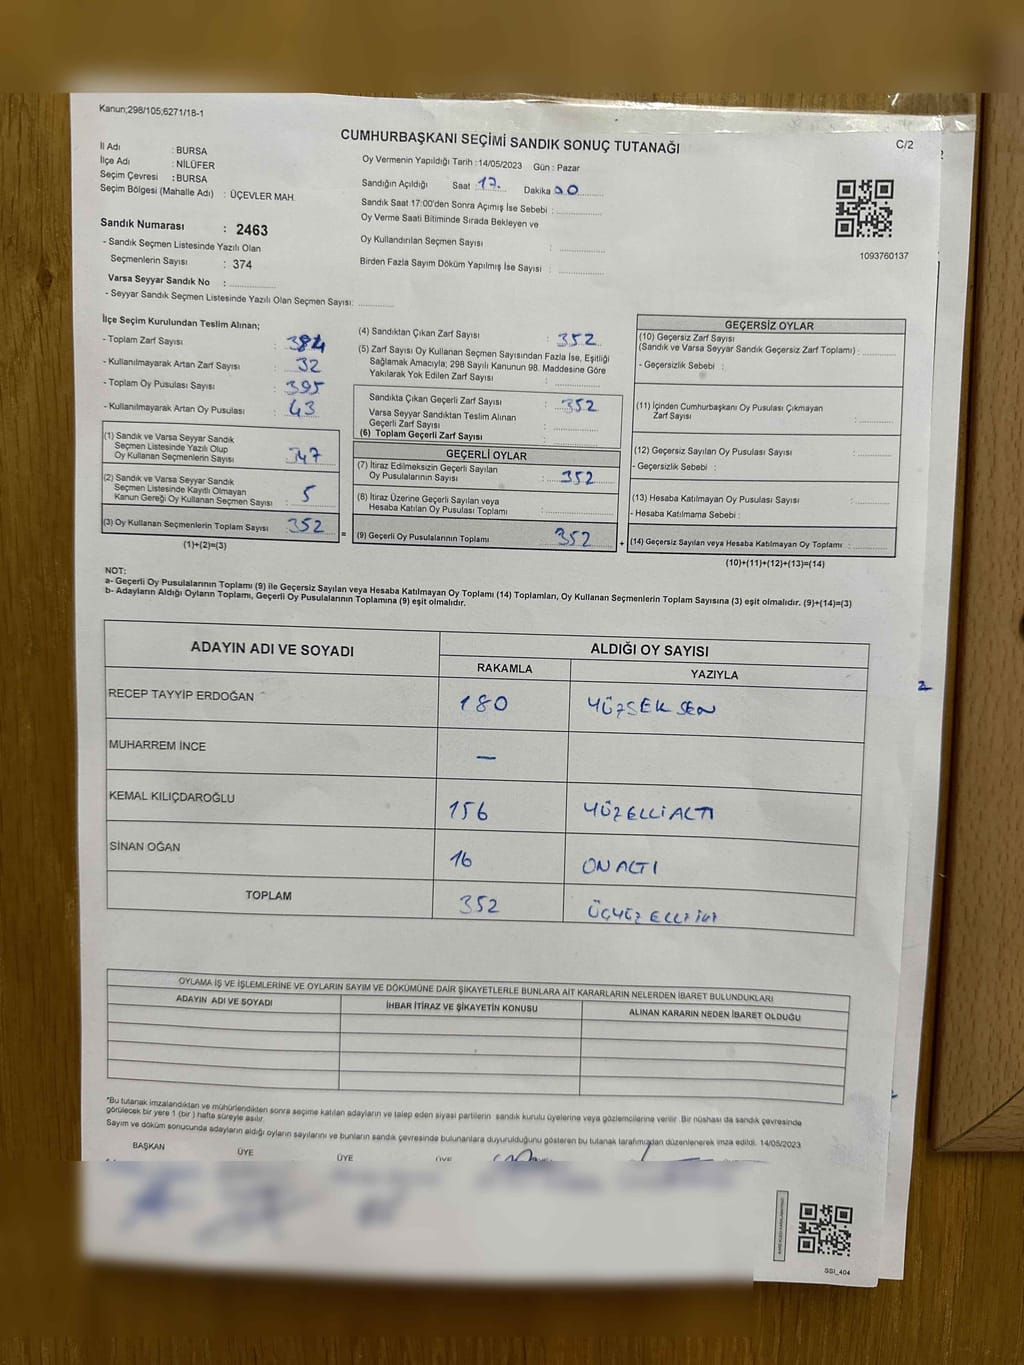 Kanun;298/105;6271/18-1
CUMHURBAŞKANI SEÇİMİ SANDIK SONUÇ TUTANAĞI
C/2
İl Adı : BURSA
İlçe Adı : NİLÜFER
Seçim Çevresi : BURSA
Seçim Bölgesi (Mahalle Adı) : ÜÇEVLER MAH.
Oy Vermenin Yapıldığı Tarih : 14/05/2023 Gün : Pazar
Sandığın Açıldığı Saat : 17. Dakika 00
Sandık Saat 17:00'den Sonra Açımış İse Sebebi :
Oy Verme Saati Bitiminde Sırada Bekleyen ve
Oy Kullandırılan Seçmen Sayısı :
Birden Fazla Sayım Döküm Yapılmış İse Sayısı :
1093760137
Sandık Numarası : 2463
- Sandık Seçmen Listesinde Yazılı Olan
Seçmenlerin Sayısı : 374
Varsa Seyyar Sandık No :
- Seyyar Sandık Seçmen Listesinde Yazılı Olan Seçmen Sayısı:
İlçe Seçim Kurulundan Teslim Alınan;
- Toplam Zarf Sayısı : 384
- Kullanılmayarak Artan Zarf Sayısı : 32
- Toplam Oy Pusulası Sayısı : 395
- Kullanılmayarak Artan Oy Pusulası : 43
(1) Sandık ve Varsa Seyyar Sandık
Seçmen Listesinde Yazılı Olup
Oy Kullanan Seçmenlerin Sayısı : 347
(2) Sandık ve Varsa Seyyar Sandık
Seçmen Listesinde Kayıtlı Olmayan
Kanun Gereği Oy Kullanan Seçmen Sayısı : 5
(3) Oy Kullanan Seçmenlerin Toplam Sayısı 352
(1)+(2)=(3)
=
(4) Sandıktan Çıkan Zarf Sayısı : 352
(5) Zarf Sayısı Oy Kullanan Seçmen Sayısından Fazla İse, Eşitliği
Sağlamak Amacıyla; 298 Sayılı Kanunun 98. Maddesine Göre
Yakılarak Yok Edilen Zarf Sayısı :
Sandıkta Çıkan Geçerli Zarf Sayısı : 352
Varsa Seyyar Sandıktan Teslim Alınan
Geçerli Zarf Sayısı :
(6) Toplam Geçerli Zarf Sayısı :
GEÇERLİ OYLAR
(7) İtiraz Edilmeksizin Geçerli Sayılan
Oy Pusulalarının Sayısı : 352
(8) İtiraz Üzerine Geçerli Sayılan veya
Hesaba Katılan Oy Pusulası Toplamı :
(9) Geçerli Oy Pusulalarının Toplamı 352
+
GEÇERSİZ OYLAR
(10) Geçersiz Zarf Sayısı
(Sandık ve Varsa Seyyar Sandık Geçersiz Zarf Toplamı) :
- Geçersizlik Sebebi :
(11) İçinden Cumhurbaşkanı Oy Pusulası Çıkmayan
Zarf Sayısı :
(12) Geçersiz Sayılan Oy Pusulası Sayısı :
- Geçersizlik Sebebi :
(13) Hesaba Katılmayan Oy Pusulası Sayısı :
- Hesaba Katılmama Sebebi :
(14) Geçersiz Sayılan veya Hesaba Katılmayan Oy Toplamı :
(10)+(11)+(12)+(13)=(14)
NOT:
a- Geçerli Oy Pusulalarının Toplamı (9) ile Geçersiz Sayılan veya Hesaba Katılmayan Oy Toplamı (14) Toplamları, Oy Kullanan Seçmenlerin Toplam Sayısına (3) eşit olmalıdır. (9)+(14)=(3)
b- Adayların Aldığı Oyların Toplamı, Geçerli Oy Pusulalarının Toplamına (9) eşit olmalıdır.
ADAYIN ADI VE SOYADI ALDIĞI OY SAYISI
RAKAMLA YAZIYLA
RECEP TAYYİP ERDOĞAN 180 YÜZSEKSEN
MUHARREM İNCE —
KEMAL KILIÇDAROĞLU 156 YÜZELLİALTI
SİNAN OĞAN 16 ONALTI
TOPLAM 352 ÜÇYÜZ ELLİ İKİ
2
OYLAMA İŞ VE İŞLEMLERİNE VE OYLARIN SAYIM VE DÖKÜMÜNE DAİR ŞİKAYETLERLE BUNLARA AİT KARARLARIN NELERDEN İBARET BULUNDUKLARI
ADAYIN ADI VE SOYADI İHBAR İTİRAZ VE ŞİKAYETİN KONUSU ALINAN KARARIN NEDEN İBARET OLDUĞU
*Bu tutanak imzalandıktan ve mühürlendikten sonra seçime katılan adayların ve talep eden siyasi partilerin sandık kurulu üyelerine veya gözlemcilerine verilir. Bir nüshası da sandık çevresinde
görülecek bir yere 1 (bir) hafta süreyle asılır.
Sayım ve döküm sonucunda adayların aldığı oyların sayılarını ve bunların sandık çevresinde bulunanlara duyurulduğunu gösteren bu tutanak tarafımızdan düzenlenerek imza edildi. 14/05/2023
BAŞKAN ÜYE ÜYE ÜYE
SSİ_404